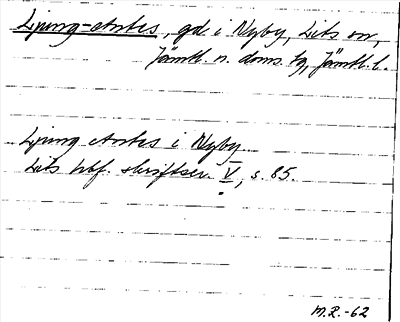 Ljung-Antes, gd. i Nyby, Lits sn,
Jämtl. n. doms. tg, Jämtl. l.
Ljung Antes i Nyby
Lits hbf. skriftser. V, s. 85.
M.R.-62